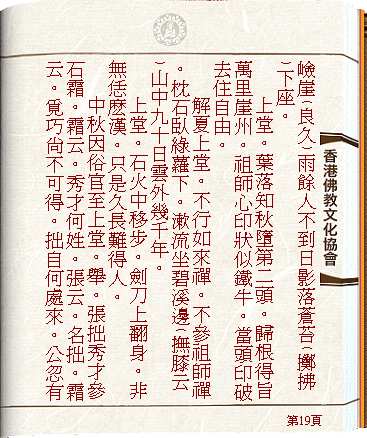 嶮崖(良久)雨餘人不到日影落蒼苔(擲拂
)下座。
上堂。葉落知秋墮第二頭。歸根得旨
萬里崖州。祖師心印狀似鐵牛。當頭印破
去住自由。
解夏上堂。不行如來禪。不參祖師禪
。枕石臥綠蘿下。漱流坐碧溪邊(撫膝云
)山中九十日雲外幾千年。
上堂。石火中移步。劍刀上翻身。非
無恁麼漢。只是久長難得人。
中秋因俗官至上堂。舉。張拙秀才參
石霜。霜云。秀才何姓。張云。名拙。霜
云。覓巧尚不可得。拙自何處來。公忽有
香港佛教文化協會
第19頁